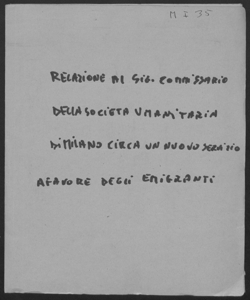 M I 35
RELAZIONE AL SIG. COMMISSARIO
DELLA SOCIETA UMANITARIA
DI MILANO CIRCA UN NUOVO SERVIZIO
A FAVORE DEGLI EMIGRANTI